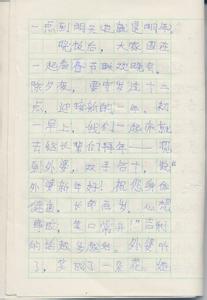 一点到明天也就是明年，
晚饭后，大家围在
一起看春节联欢晚会，
除夕夜，要守岁过十二
点，迎接新的一年。初
一早上，我们一起床就
去给长辈们拜年——
到外婆，双手合十，说“
外婆新年好！祝您身体
健康，长命百岁，心想
事成，笑口常开！”吉利
的话越多越好，外婆听
了，笑成了一朵花，她